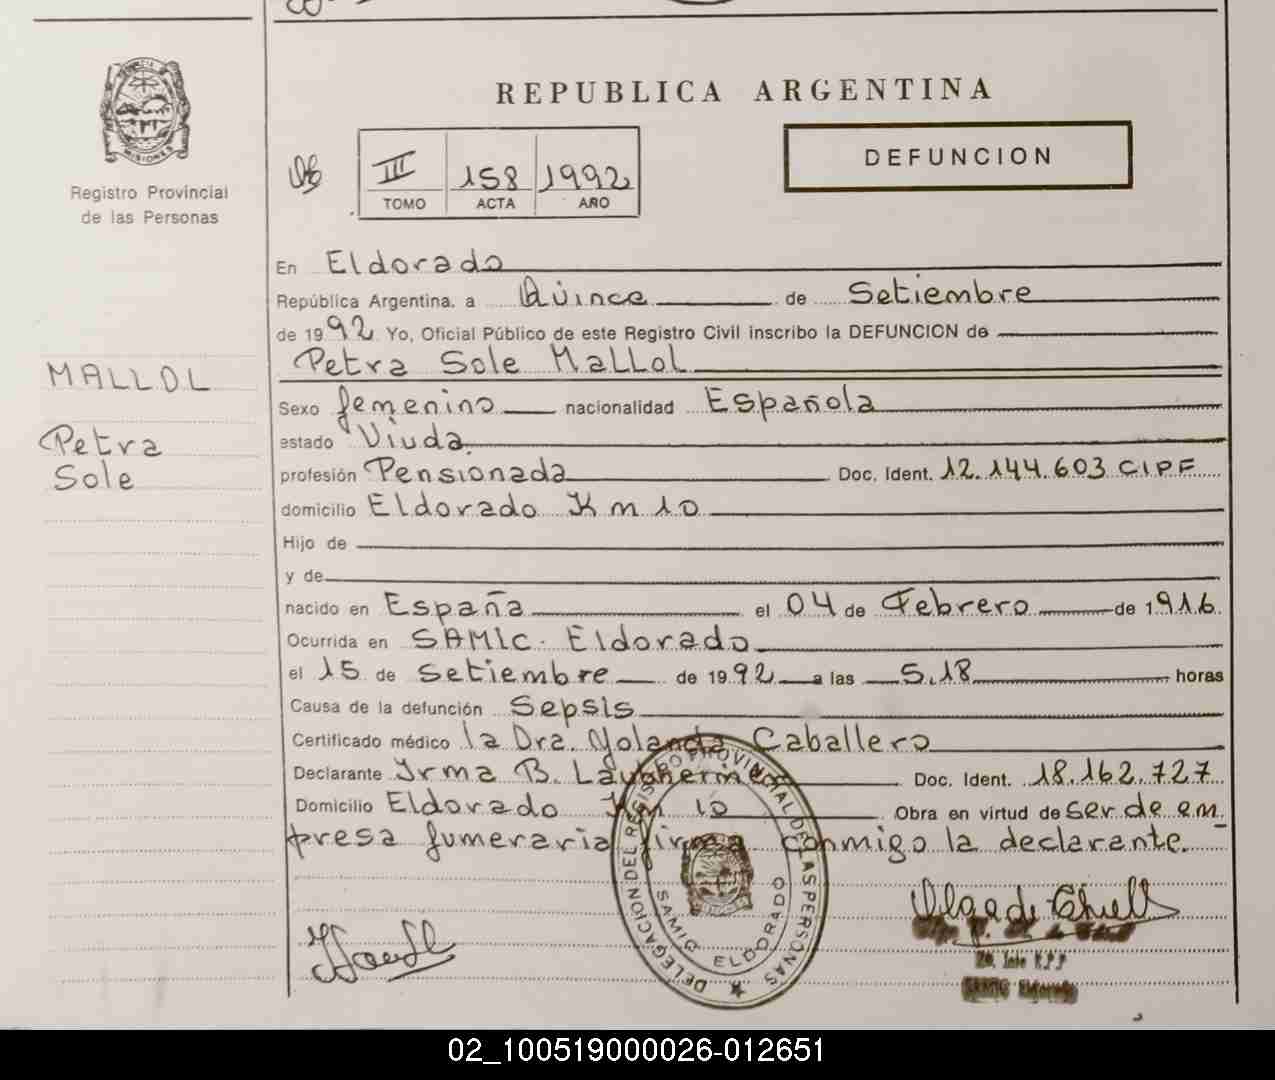 REPUBLICA ARGENTINA
III 158 1992
TOMO ACTA AÑO
DEFUNCION
PROVINCIA DE
MISIONES
Registro Provincial
de las Personas
MALLOL
Petra
Sole
En Eldorado
República Argentina, a Quince de Setiembre
de 1992 Yo, Oficial Público de este Registro Civil inscribo la DEFUNCION de
Petra Sole Mallol
Sexo femenino nacionalidad Española
estado Viuda.
profesión Pensionada Doc. Ident. 12.144.603 CIPF
domicilio Eldorado Km 10
Hijo de
y de
nacido en España el 04 de Febrero de 1916
Ocurrida en SAMIC. Eldorado
el 15 de Setiembre de 1992 a las 5,18 horas
Causa de la defunción Sepsis
Certificado médico la Dra. Yolanda Caballero
Declarante Irma B. Doc. Ident. 18.162.727
Domicilio Eldorado Km 10 Obra en virtud de ser de em
presa fumeraria firma conmigo la declarante.
DELEGACION DEL REGISTRO PROVINCIAL DE LAS PERSONAS
SAMIC ELDORADO
Olga de
SAMIC Eldorado
02_100519000026-012651